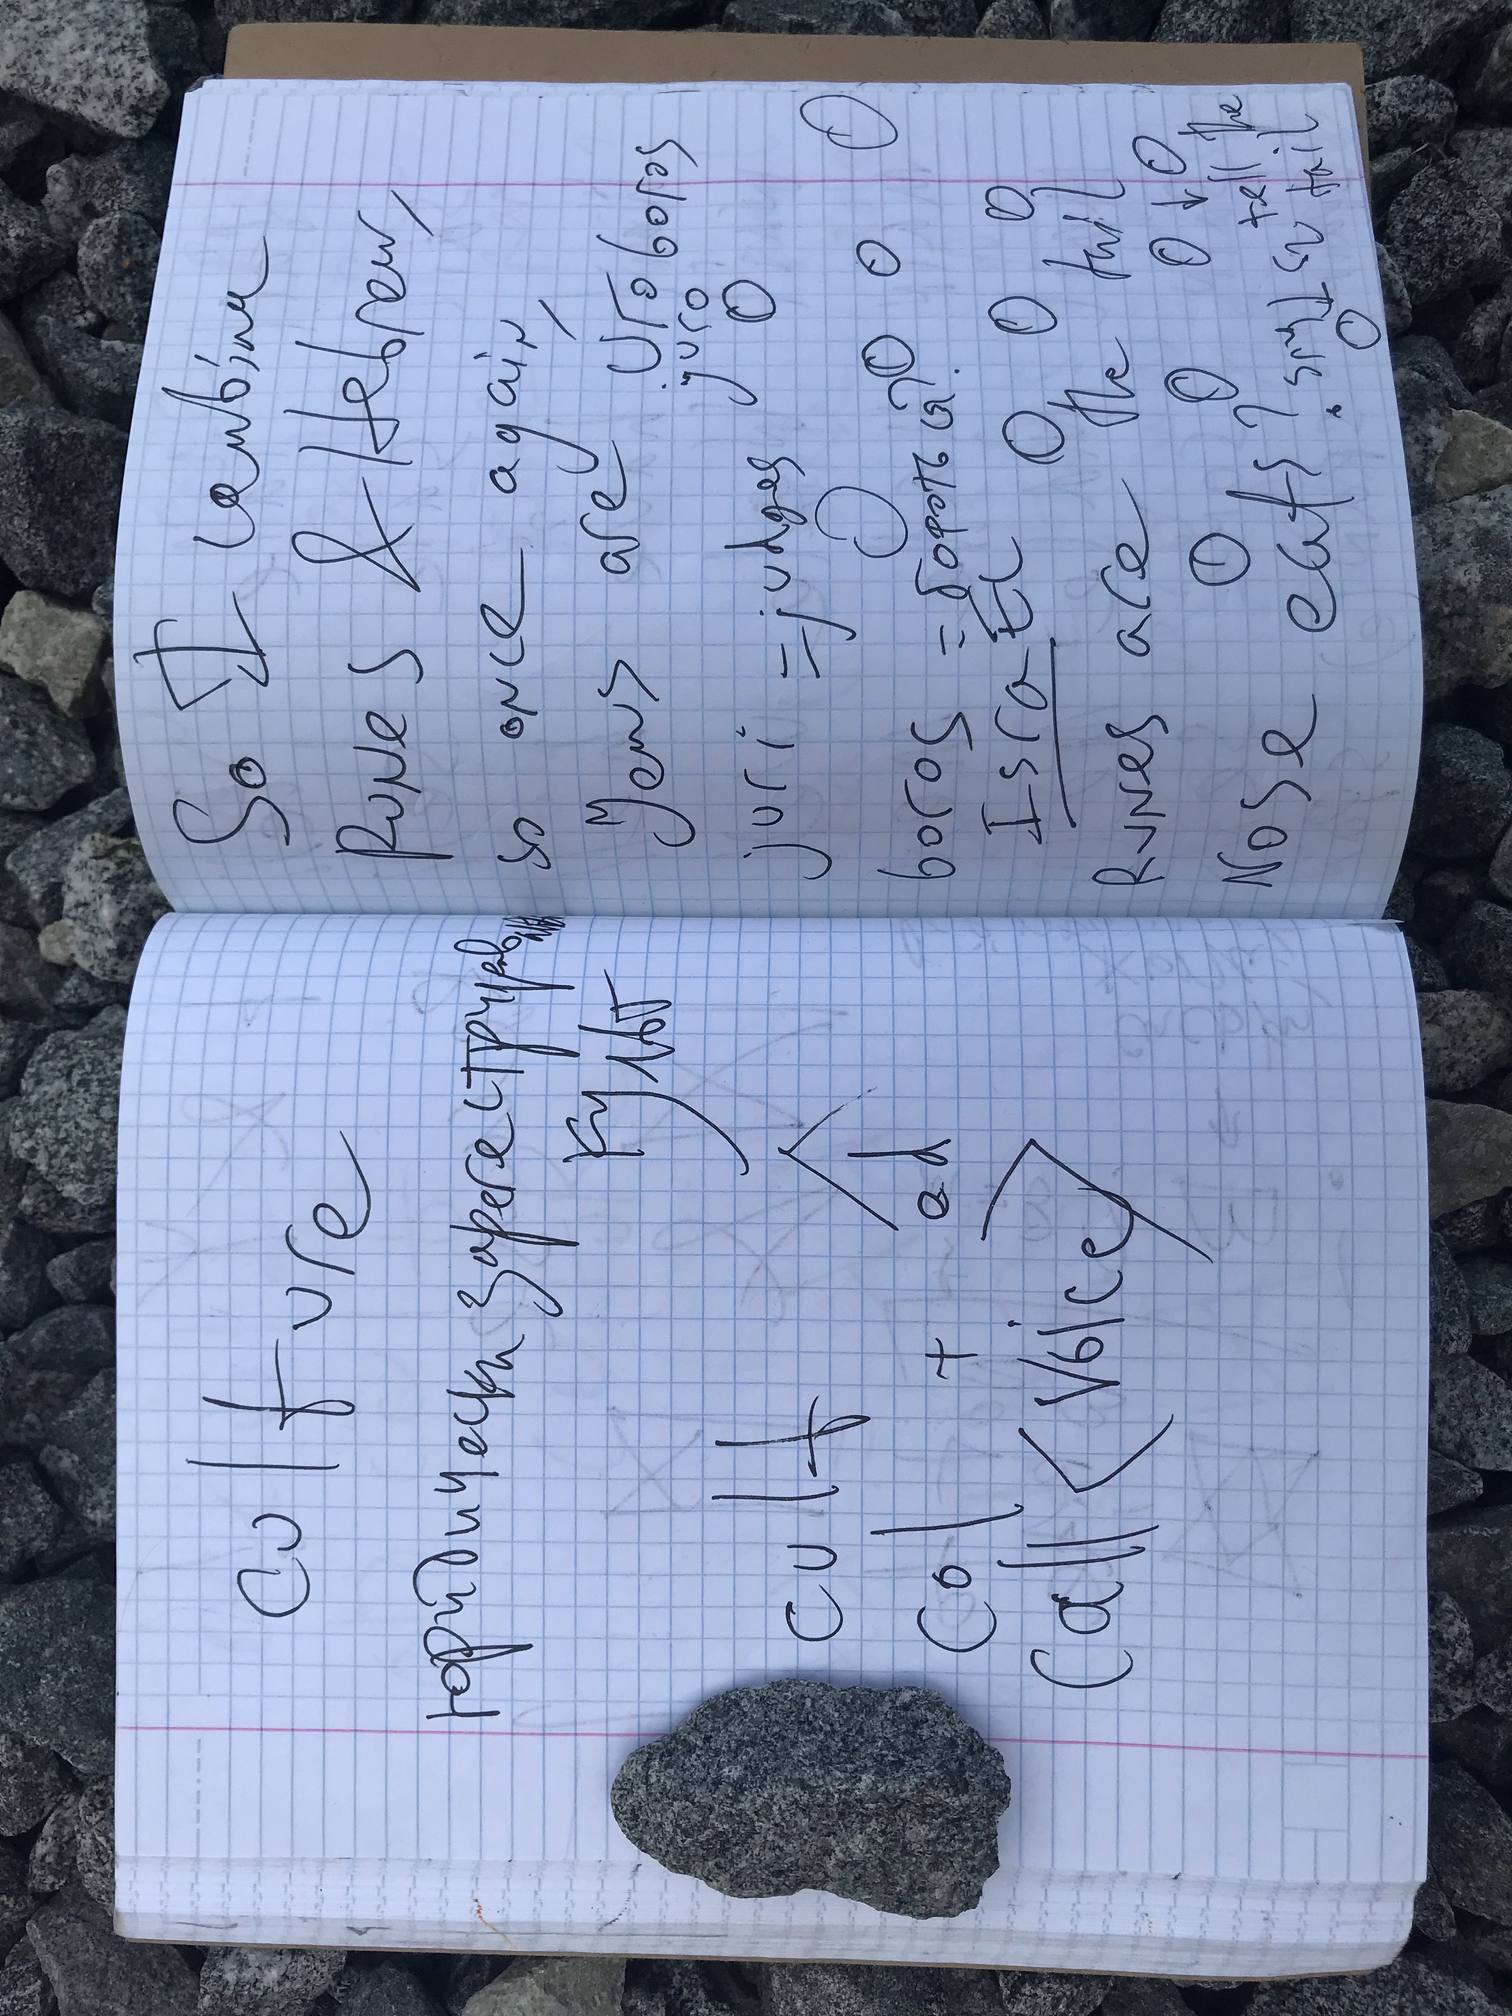 Culture
юридически зарегестрирован
культ
cult
Col + ad
Call < Voice >
So I combine
Runes & Hebrew,
so once again,
Jews are Uroboros
juro
juri = judges
boros = бороться?
Isra El
Runes are the tail
Nose eats? Snut su tail
tell the